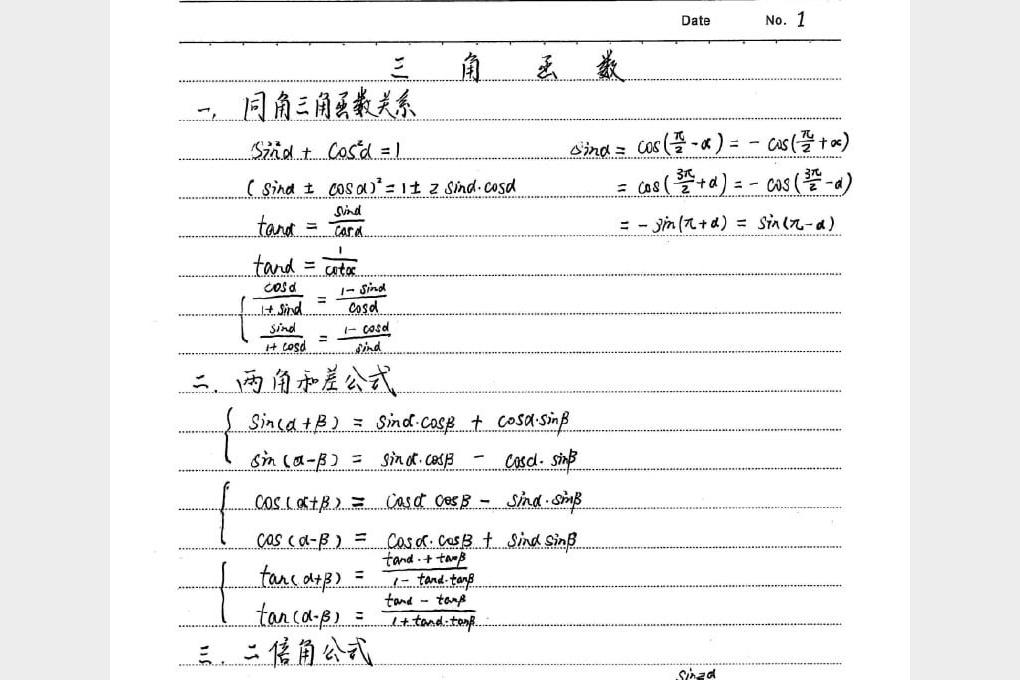 Date No. 1
三角函数
一、同角三角函数关系
sin²α + cos²α = 1
sinα = cos(π/2 - α) = - cos(π/2 + α)
(sinα ± cosα)² = 1 ± 2 sinα·cosα
= cos(3π/2 + α) = - cos(3π/2 - α)
tanα = sinα/cosα
= - sin(π + α) = sin(π - α)
tanα = 1/cotα
cosα/(1 + sinα) = (1 - sinα)/cosα
sinα/(1 + cosα) = (1 - cosα)/sinα
二、两角和差公式
sin(α + β) = sinα·cosβ + cosα·sinβ
sin(α - β) = sinα·cosβ - cosα·sinβ
cos(α + β) = cosα cosβ - sinα·sinβ
cos(α - β) = cosα·cosβ + sinα sinβ
tan(α + β) = (tanα + tanβ)/(1 - tanα·tanβ)
tan(α - β) = (tanα - tanβ)/(1 + tanα·tanβ)
三、二倍角公式
sin2α